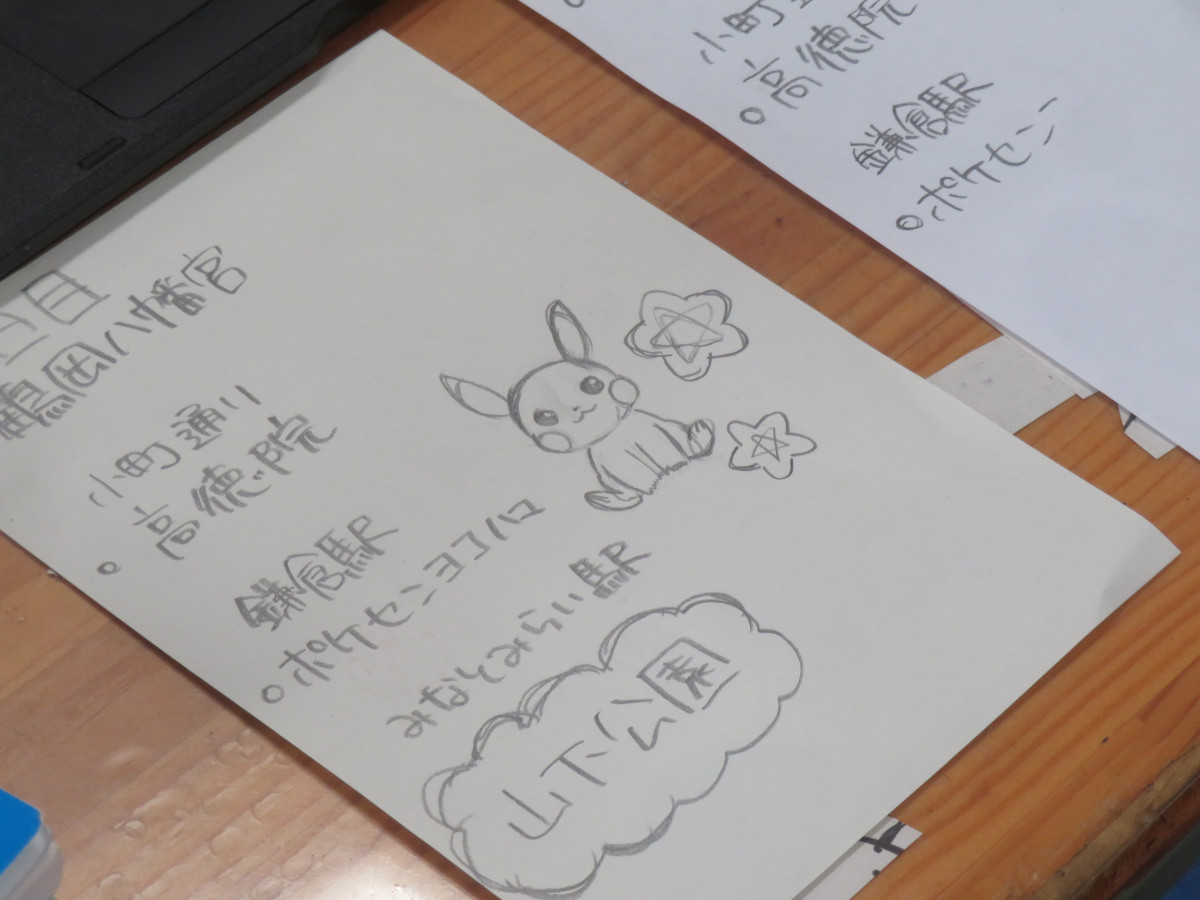 日目
鶴岡八幡宮
小町通り
○高徳院
鎌倉駅
○ポケセンヨコハマ
みなとみらい駅
山下公園
小町通
○高徳院
鎌倉駅
○ポケセン